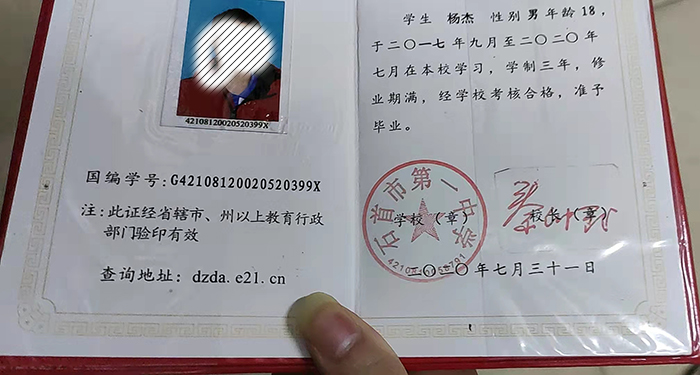 42108120020520399X
国编学号：G42108120020520399X
注：此证经省辖市、州以上教育行政
部门验印有效
查询地址：dzda.e21.cn
学生 杨杰 性别男年龄18，
于二〇一七年九月至二〇二〇年
七月在本校学习，学制三年，修
业期满，经学校考核合格，准予
毕业。
石首市第一中学
学校（章）
校长（章）
二〇二〇年七月三十一日